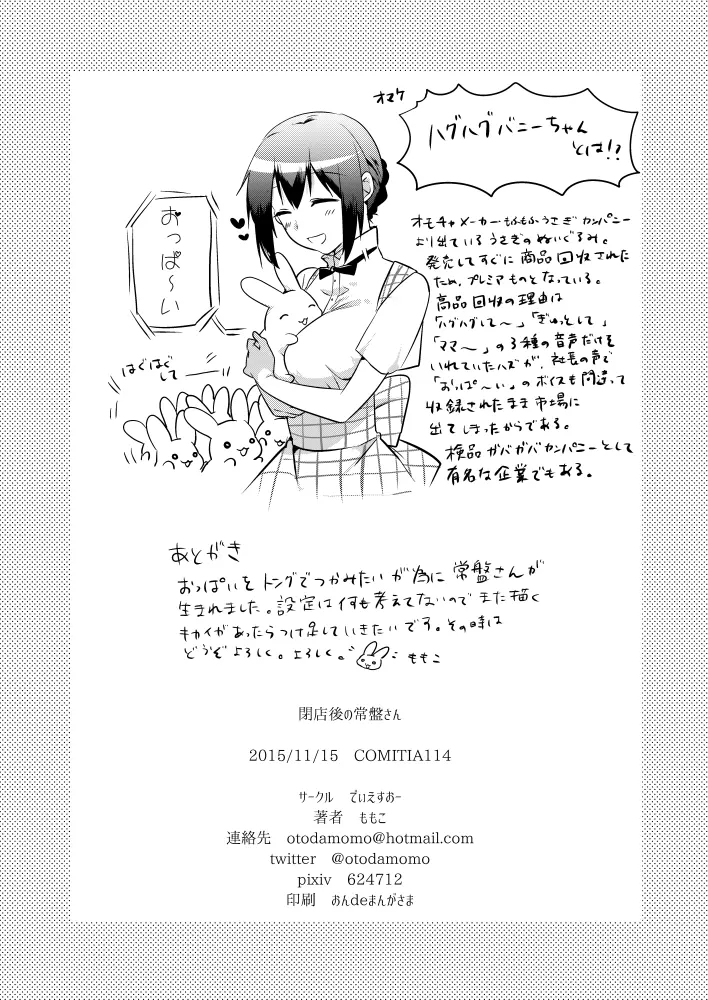 オマケ
ハグハグバニーちゃん
とは!?
オモチャメーカー・もふもふうさぎカンパニー
より出ているうさぎのぬいぐるみ。
発売してすぐに商品回収された
ため、プレミアものとなっている。
商品回収の理由は
「ハグハグして〜」「ぎゅっとして」
「ママ〜」の3種の音声だけを
いれていたハズが、社長の声で
「おっぱ〜い」のボイスも間違って
収録されたまま市場に
出てしまったからである。
検品ガバガバカンパニーとして
有名な企業でもある。
おっぱ〜い
はぐはぐ
して――
あとがき
おっぱいをトングでつかみたいが為に常盤さんが
生まれました。設定は何も考えてないのでまた描く
キカイがあったらつけ足していきたいです。その時は
どうぞよろしく。よろしく。 ももこ
閉店後の常盤さん
2015/11/15 COMITIA114
サークル でぃえすおー
著者 ももこ
連絡先 otodamomo@hotmail.com
twitter @otodamomo
pixiv 624712
印刷 おんdeまんがさま